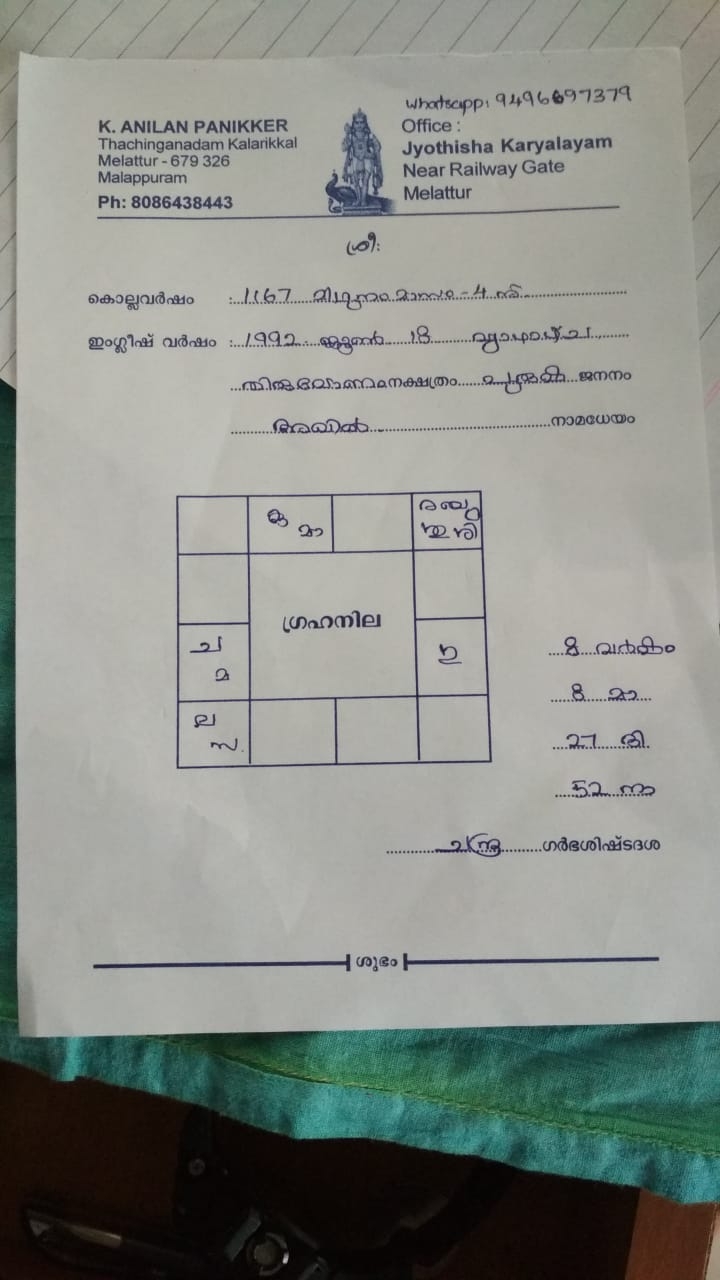 Whatsapp: 9496697379
K. ANILAN PANIKKER
Thachinganadam Kalarikkal
Melattur - 679 326
Malappuram
Ph: 8086438443
Office :
Jyothisha Karyalayam
Near Railway Gate
Melattur
ശ്രീ:
കൊല്ലവർഷം : 1167 മിഥുനം മാസം - 4 ന്
ഇംഗ്ലീഷ് വർഷം : 1992 ജൂൺ 18 വ്യാഴാഴ്ച
തിരുവോണം നക്ഷത്രം ജനനം
നാമധേയം
കു മാ
ര ബു
ശു ശി
ഗ്രഹനില
ച
മ
ല
സ
8 വർഷം
8 മാ
27 ദി
52 നാ
ചന്ദ്ര ഗർഭശിഷ്ടദശ
ശുഭം